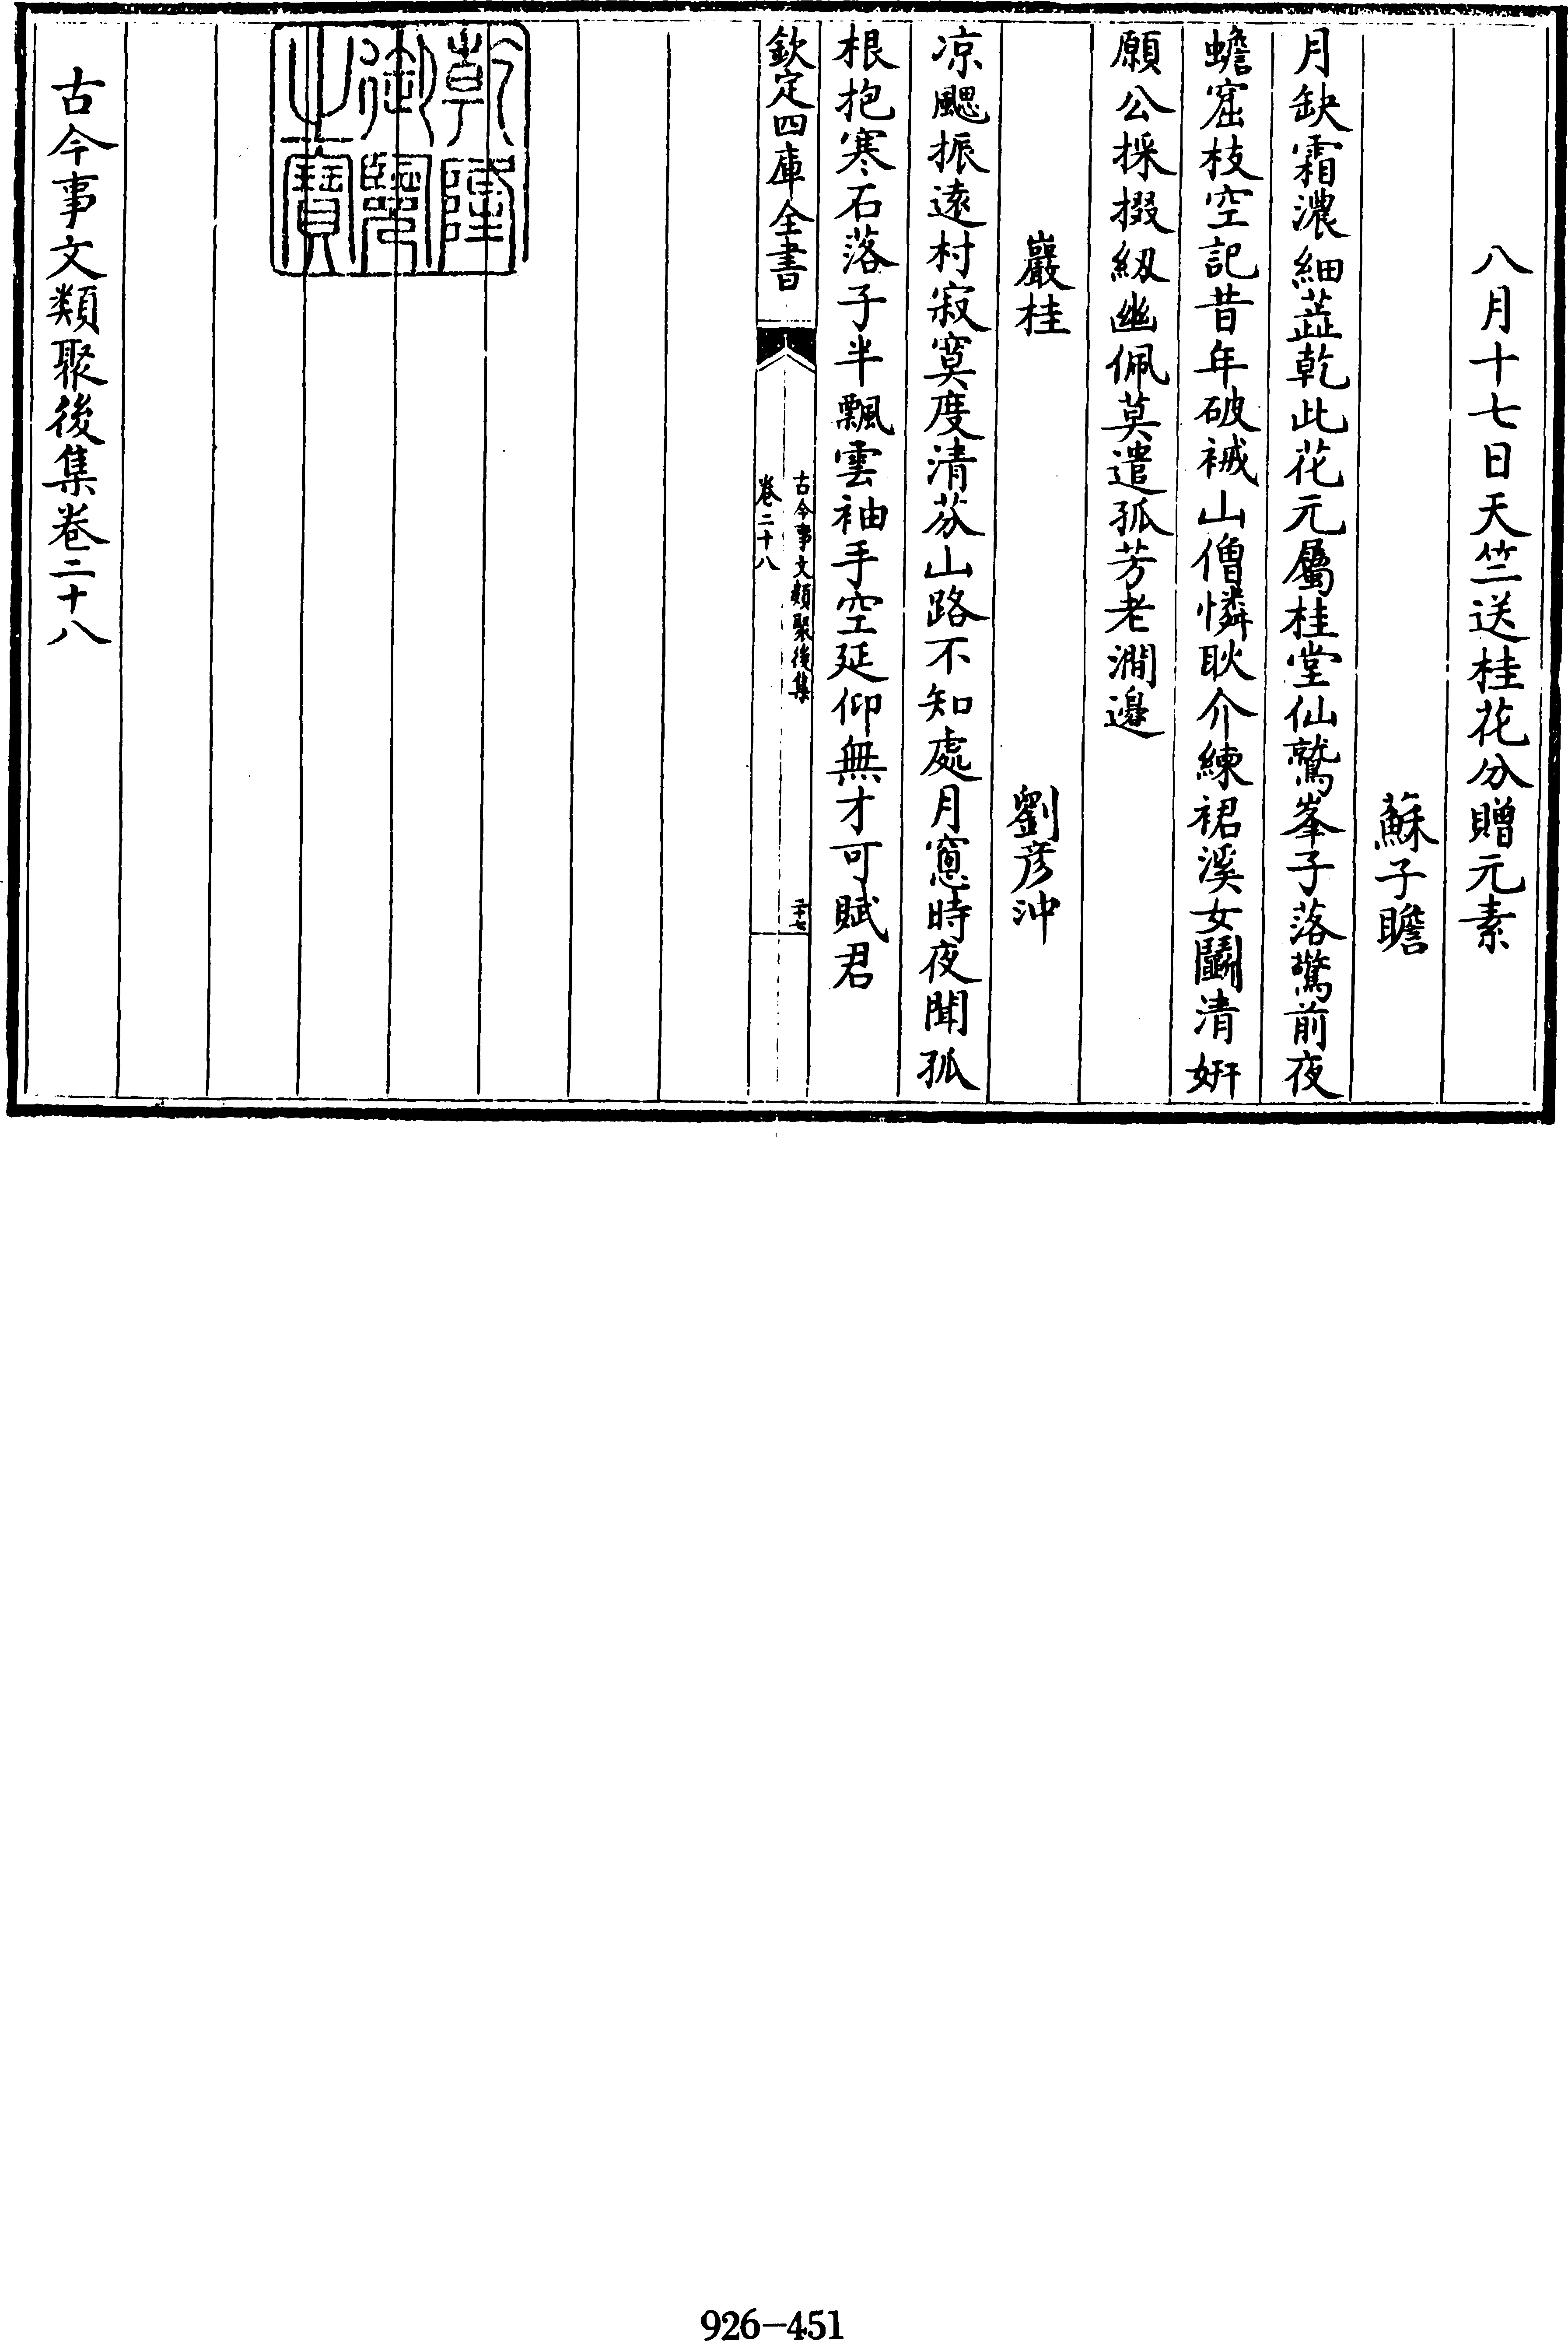 八月十七日天竺送桂花分贈元素
蘇子瞻
月缺霜濃細蕋乾此花元屬桂堂仙鷲峯子落驚前夜
蟾窟枝空記昔年破裓山僧憐耿介練裙溪女鬭清妍
願公採掇紉幽佩莫遣孤芳老澗邊
巖桂
劉彥沖
凉颸振遠村寂寞度清芬山路不知處月窻時夜聞孤
根抱寒石落子半飄雲袖手空延仰無才可賦君
欽定四庫全書
古今事文類聚後集
卷二十八
二十七
乾隆
御覽
之寶
古今事文類聚後集卷二十八
926-451